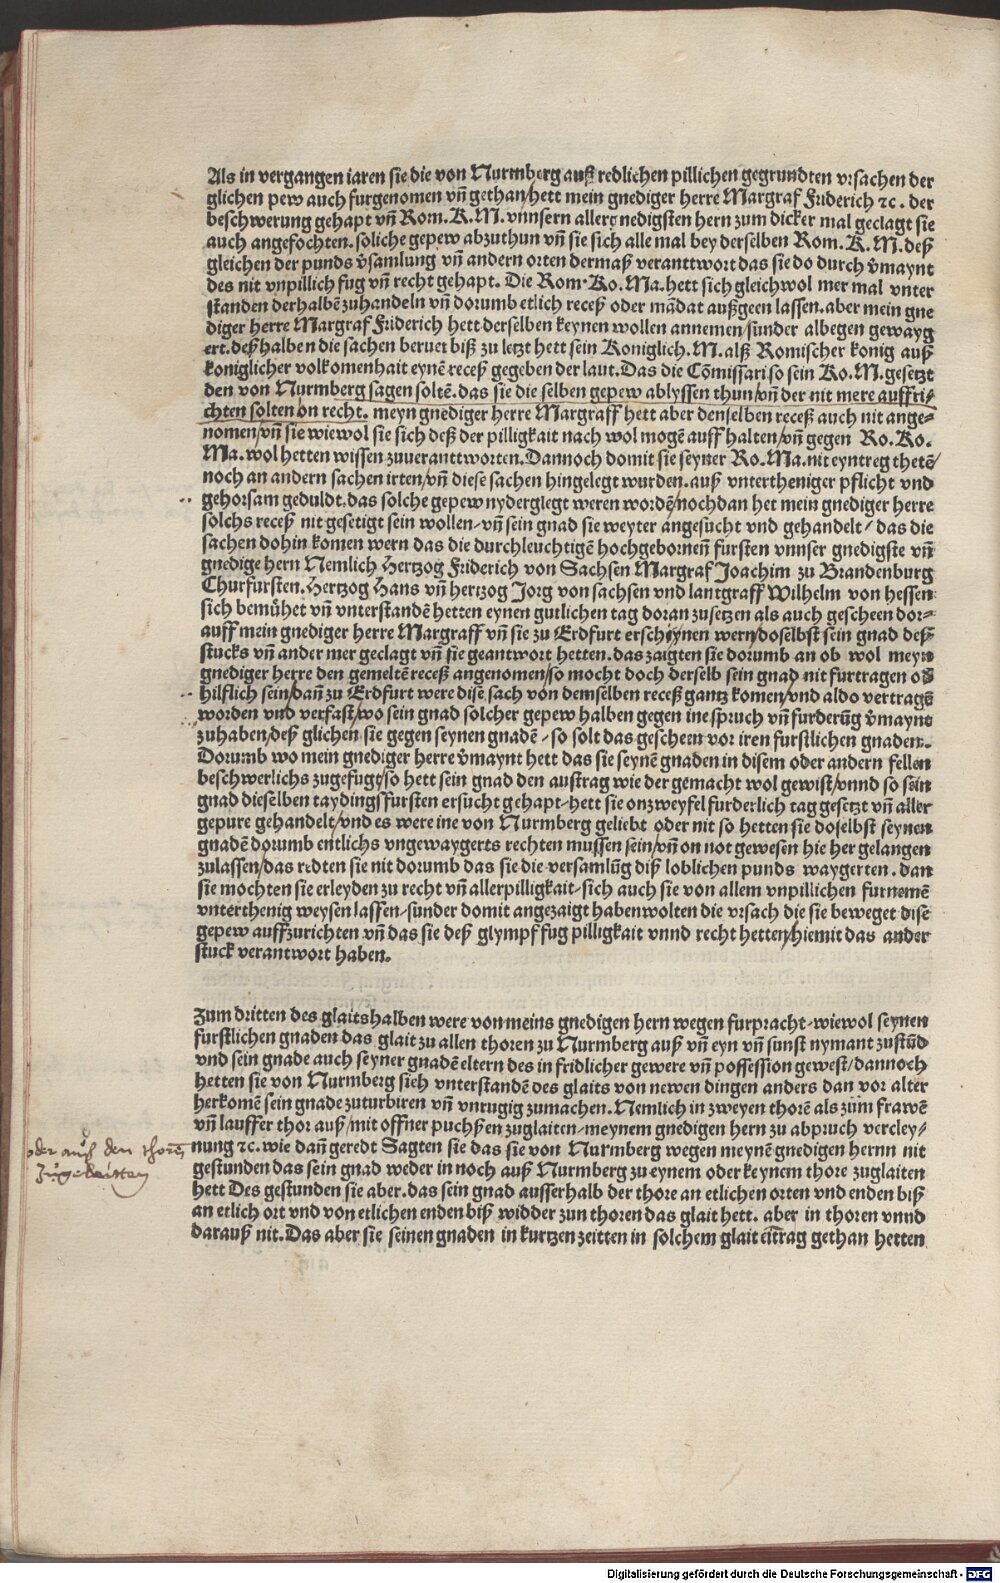 Als in vergangen iaren sie die von Nurmberg auß redlichen pillichen gegrundten vrsachen der
glichen pew auch furgenomen vn̄ gethan/hett mein gnediger herre Margraf Friderich ⁊c. der
beschwerung gehapt vn̄ Rom. K. M. vnnsern allergnedigsten hern zum dicker mal geclagt sie
auch angefochten. soliche gepew abzuthun vn̄ sie sich alle mal bey derselben Rom. K. M. deß
gleichen der punds v̄samlung vn̄ andern orten dermaß veranttwort das sie do durch v̄maynt
des nit vnpillich fug vn̄ recht gehapt. Die Rom. Ko. Ma. hett sich gleichwol mer mal vnter
standen derhalbē zuhandeln vn̄ dorumb etlich receß oder mādat außgeen lassen. aber mein gne
diger herre Margraf Friderich hett derselben keynen wollen annemen/sunder albegen gewayg
ert. deßhalben die sachen beruet biß zu letzt hett sein Koniglich. M. alß Romischer konig auß
koniglicher volkomenhait eynē receß gegeben der laut. Das die Cōmissari so sein Ko. M. gesetzt
den von Nurmberg sagen soltē. das sie die selben gepew ablyssen thun/vn̄ der nit mere auffri/
chten solten on recht. meyn gnediger herre Margraff hett aber denselben receß auch nit ange⸗
nomen/vn̄ sie wiewol sie sich deß der pilligkait nach wol mogē auff halten/vn̄ gegen Ro. Ko.
Ma. wol hetten wissen zuveranttworten. Dannoch domit sie seyner Ro. Ma. nit eyntreg thetē/
noch an andern sachen irten/vn̄ diese sachen hingelegt wurden. auß vntertheniger pflicht vnd
gehorsam geduldt. das solche gepew nyderglegt weren wordē/nochdan het mein gnediger herre
solchs receß nit gesetigt sein wollen/vn̄ sein gnad sie weyter angesucht vnd gehandelt/ das die
sachen dohin komen wern das die durchleuchtigē hochgebornen̄ fursten vnnser gnedigste vn̄
gnedige hern Nemlich Hertzog Friderich von Sachsen Margraf Joachim zu Brandenburg
Churfursten. Hertzog Hans vn̄ hertzog Jorg von sachsen vnd lantgraff Wilhelm von hessen
sich bemühet vn̄ vnterstandē hetten eynen gutlichen tag doran zusetzen als auch gescheen dor⸗
auff mein gnediger herre Margraff vn̄ sie zu Erdfurt erschiynen wern/doselbst sein gnad deß
stucks vn̄ ander mer geclagt vn̄ sie geantwort hetten. das zaigten sie dorumb an ob wol meyn
gnediger herre den gemeltē receß angenomen/so mocht doch derselb sein gnad nit furtragen od̄
hilflich sein/dan̄ zu Erdfurt were dise sach von demselben receß gantz komen/vnd aldo vertragē
worden vnd verfast/wo sein gnad solcher gepew halben gegen ine spruch vn̄ furderūg v̄maynt
zuhaben/deß glichen sie gegen seynen gnadē / so solt das gescheen vor iren furstlichen gnaden.
Dorumb wo mein gnediger herre v̄maynt hett das sie seynē gnaden in disem oder andern fellen
beschwerlichs zugefugt/so hett sein gnad den austrag wie der gemacht wol gewist/vnnd so sein
gnad dieselben taydingsfursten ersucht gehapt/hett sie onzweyfel furderlich tag gesetzt vn̄ aller
gepure gehandelt/vnd es were ine von Nurmberg geliebt oder nit so hetten sie doselbst seynen
gnadē dorumb entlichs vngewaygerts rechten mussen sein/vn̄ on not gewesen hie her gelangen
zulassen/das redten sie nit dorumb das sie die versamlūg diß loblichen punds waygerten. dan
sie mochten sie erleyden zu recht vn̄ allerpilligkait/sich auch sie von allem vnpillichen furnemē
vnterthenig weysen lassen/sunder domit angezaigt habenwolten die vrsach die sie beweget dise
gepew auffzurichten vn̄ das sie deß glympf fug pilligkait vnnd recht hetten/hiemit das ander
stuck verantwort haben.
Zum dritten des glaitshalben were von meins gnedigen hern wegen furpracht/wiewol seynen
furstlichen gnaden das glait zu allen thoren zu Nurmberg auß vn̄ eyn vn̄ sunst nymant zustūd
vnd sein gnade auch seyner gnadē eltern des in fridlicher gewere vn̄ possession gewest/dannoch
hetten sie von Nurmberg sieh vnterstandē des glaits von newen dingen anders dan vor alter
herkomē sein gnade zuturbiren vn̄ vnrugig zumachen. Nemlich in zweyen thorē als zum frawē
vn̄ lauffer thor auß/mit offner puchßen zuglaiten/meynem gnedigen hern zu abpruch vercley/
nung ⁊c. wie dan̄ geredt Sagten sie das sie von Nurmberg wegen meynē gnedigen hernn nit
gestunden das sein gnad weder in noch auß Nurmberg zu eynem oder keynem thore zuglaiten
hett Des gestunden sie aber. das sein gnad ausserhalb der thore an etlichen orten vnd enden biß
an etlich ort vnd von etlichen enden biß widder zun thoren das glait hett. aber in thoren vnnd
darauß nit. Das aber sie seinen gnaden in kurtzen zeitten in solchem glait eītrag gethan hetten
oder auß den thorē
zugelaitten
Digitalisierung gefördert durch die Deutsche Forschungsgemeinschaft - DFG